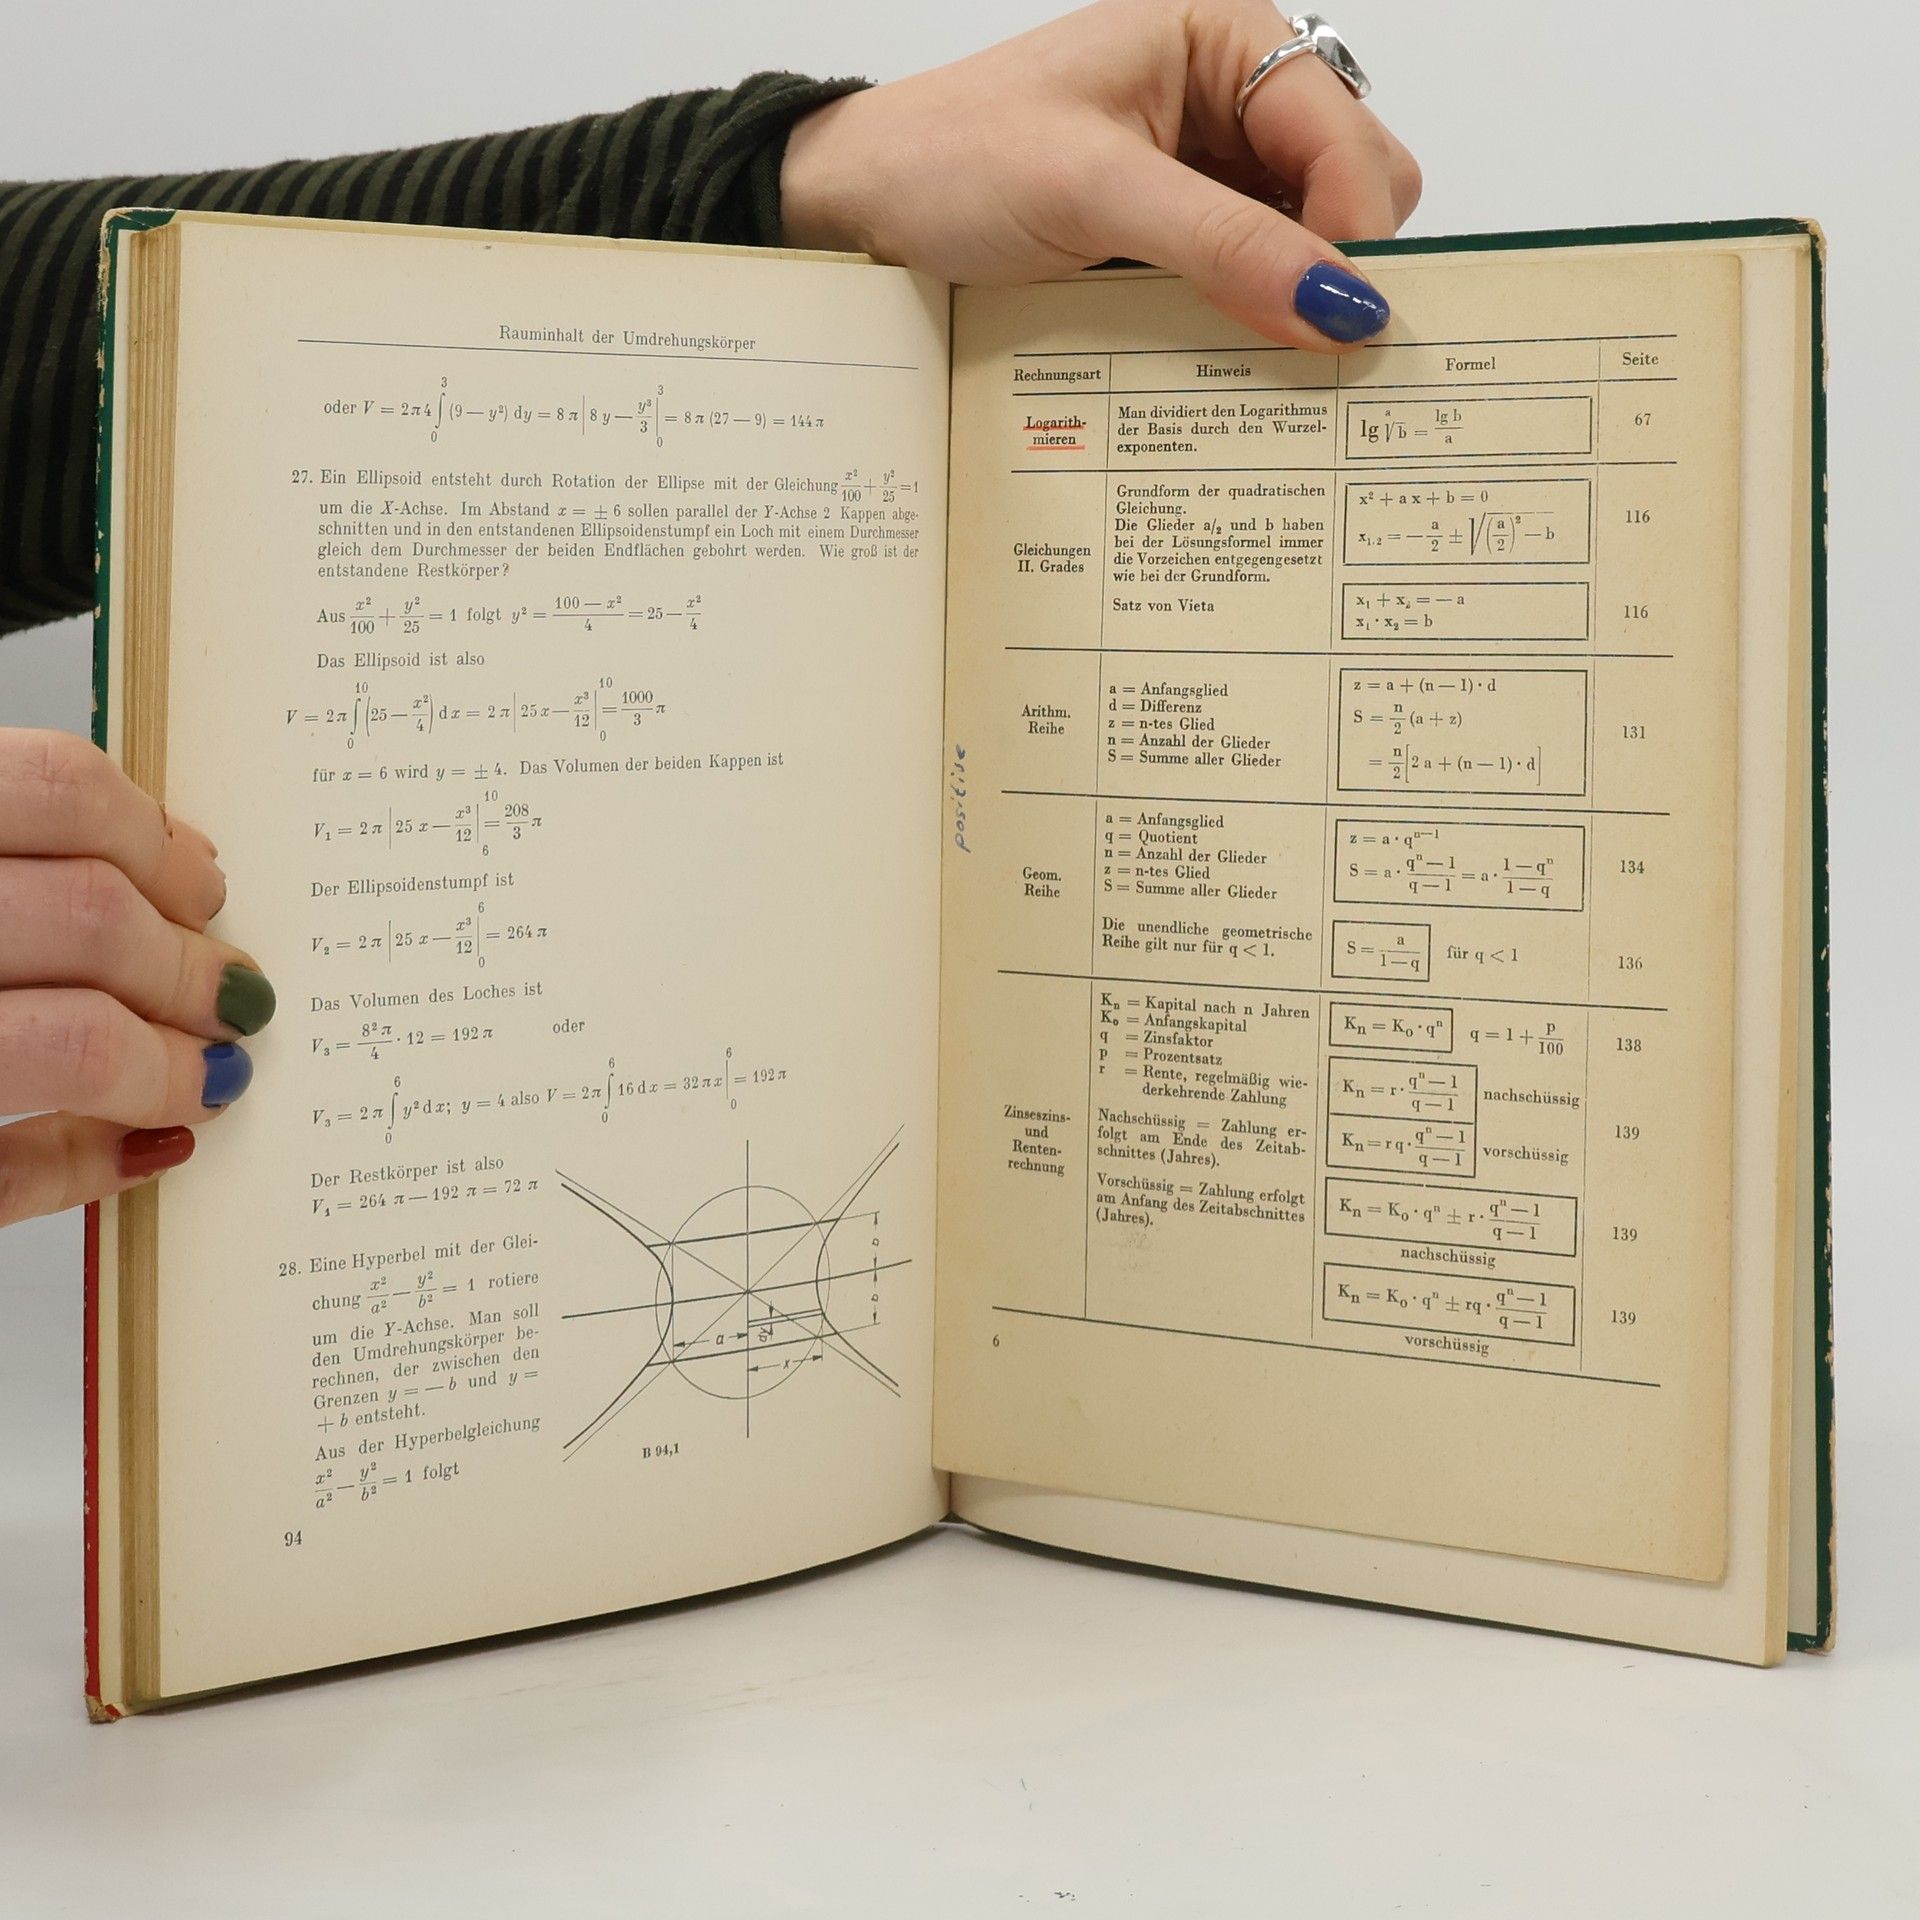 Rauminhalt der Umdrehungskörper
oder V = 2π4 ∫₀³ (9 — y²) dy = 8 π | 8 y — y³/3 |₀³ = 8 π (27 — 9) = 144 π
27. Ein Ellipsoid entsteht durch Rotation der Ellipse mit der Gleichung x²/100 + y²/25 = 1
um die X-Achse. Im Abstand x = ± 6 sollen parallel der Y-Achse 2 Kappen abge-
schnitten und in den entstandenen Ellipsoidenstumpf ein Loch mit einem Durchmesser
gleich dem Durchmesser der beiden Endflächen gebohrt werden. Wie groß ist der
entstandene Restkörper?
Aus x²/100 + y²/25 = 1 folgt y² = (100 — x²)/4 = 25 — x²/4
Das Ellipsoid ist also
V = 2 π ∫₀¹⁰ (25 — x²/4) dx = 2 π | 25 x — x³/12 |₀¹⁰ = 1000/3 π
für x = 6 wird y = ± 4. Das Volumen der beiden Kappen ist
V₁ = 2 π | 25 x — x³/12 |₆¹⁰ = 208/3 π
Der Ellipsoidenstumpf ist
V₂ = 2 π | 25 x — x³/12 |₀⁶ = 264 π
Das Volumen des Loches ist
V₃ = 8² π/4 · 12 = 192 π oder
V₃ = 2 π ∫₀⁶ y² dx; y = 4 also V = 2 π ∫₀⁶ 16 dx = 32 π x |₀⁶ = 192 π
Der Restkörper ist also
V₄ = 264 π — 192 π = 72 π
28. Eine Hyperbel mit der Glei-
chung x²/a² — y²/b² = 1 rotiere
um die Y-Achse. Man soll
den Umdrehungskörper be-
rechnen, der zwischen den
Grenzen y = — b und y =
+ b entsteht.
Aus der Hyperbelgleichung
x²/a² — y²/b² = 1 folgt
b
b
a
dy
x
B 94,1
94
positive
Rechnungsart Hinweis Formel Seite
Logarith-
mieren
Man dividiert den Logarithmus
der Basis durch den Wurzel-
exponenten.
lg ᵃ√b = lg b/a
67
Gleichungen
II. Grades
Grundform der quadratischen
Gleichung.
Die Glieder a/₂ und b haben
bei der Lösungsformel immer
die Vorzeichen entgegengesetzt
wie bei der Grundform.
x² + a x + b = 0
x₁,₂ = — a/2 ± √((a/2)² — b)
116
Satz von Vieta
x₁ + x₂ = — a
x₁ · x₂ = b
116
Arithm.
Reihe
a = Anfangsglied
d = Differenz
z = n-tes Glied
n = Anzahl der Glieder
S = Summe aller Glieder
z = a + (n — 1) · d
S = n/2 (a + z)
= n/2 [2 a + (n — 1) · d]
131
Geom.
Reihe
a = Anfangsglied
q = Quotient
n = Anzahl der Glieder
z = n-tes Glied
S = Summe aller Glieder
z = a · qⁿ⁻¹
S = a · (qⁿ — 1)/(q — 1) = a · (1 — qⁿ)/(1 — q)
134
Die unendliche geometrische
Reihe gilt nur für q < 1.
S = a/(1 — q) für q < 1
136
Zinseszins-
und
Renten-
rechnung
Kₙ = Kapital nach n Jahren
K₀ = Anfangskapital
q = Zinsfaktor
p = Prozentsatz
r = Rente, regelmäßig wie-
derkehrende Zahlung
Nachschüssig = Zahlung er-
folgt am Ende des Zeitab-
schnittes (Jahres).
Vorschüssig = Zahlung erfolgt
am Anfang des Zeitabschnittes
(Jahres).
Kₙ = K₀ · qⁿ q = 1 + p/100
138
Kₙ = r · (qⁿ — 1)/(q — 1) nachschüssig
Kₙ = r q · (qⁿ — 1)/(q — 1) vorschüssig
139
Kₙ = K₀ · qⁿ ± r · (qⁿ — 1)/(q — 1)
nachschüssig
139
Kₙ = K₀ · qⁿ ± rq · (qⁿ — 1)/(q — 1)
vorschüssig
139
6